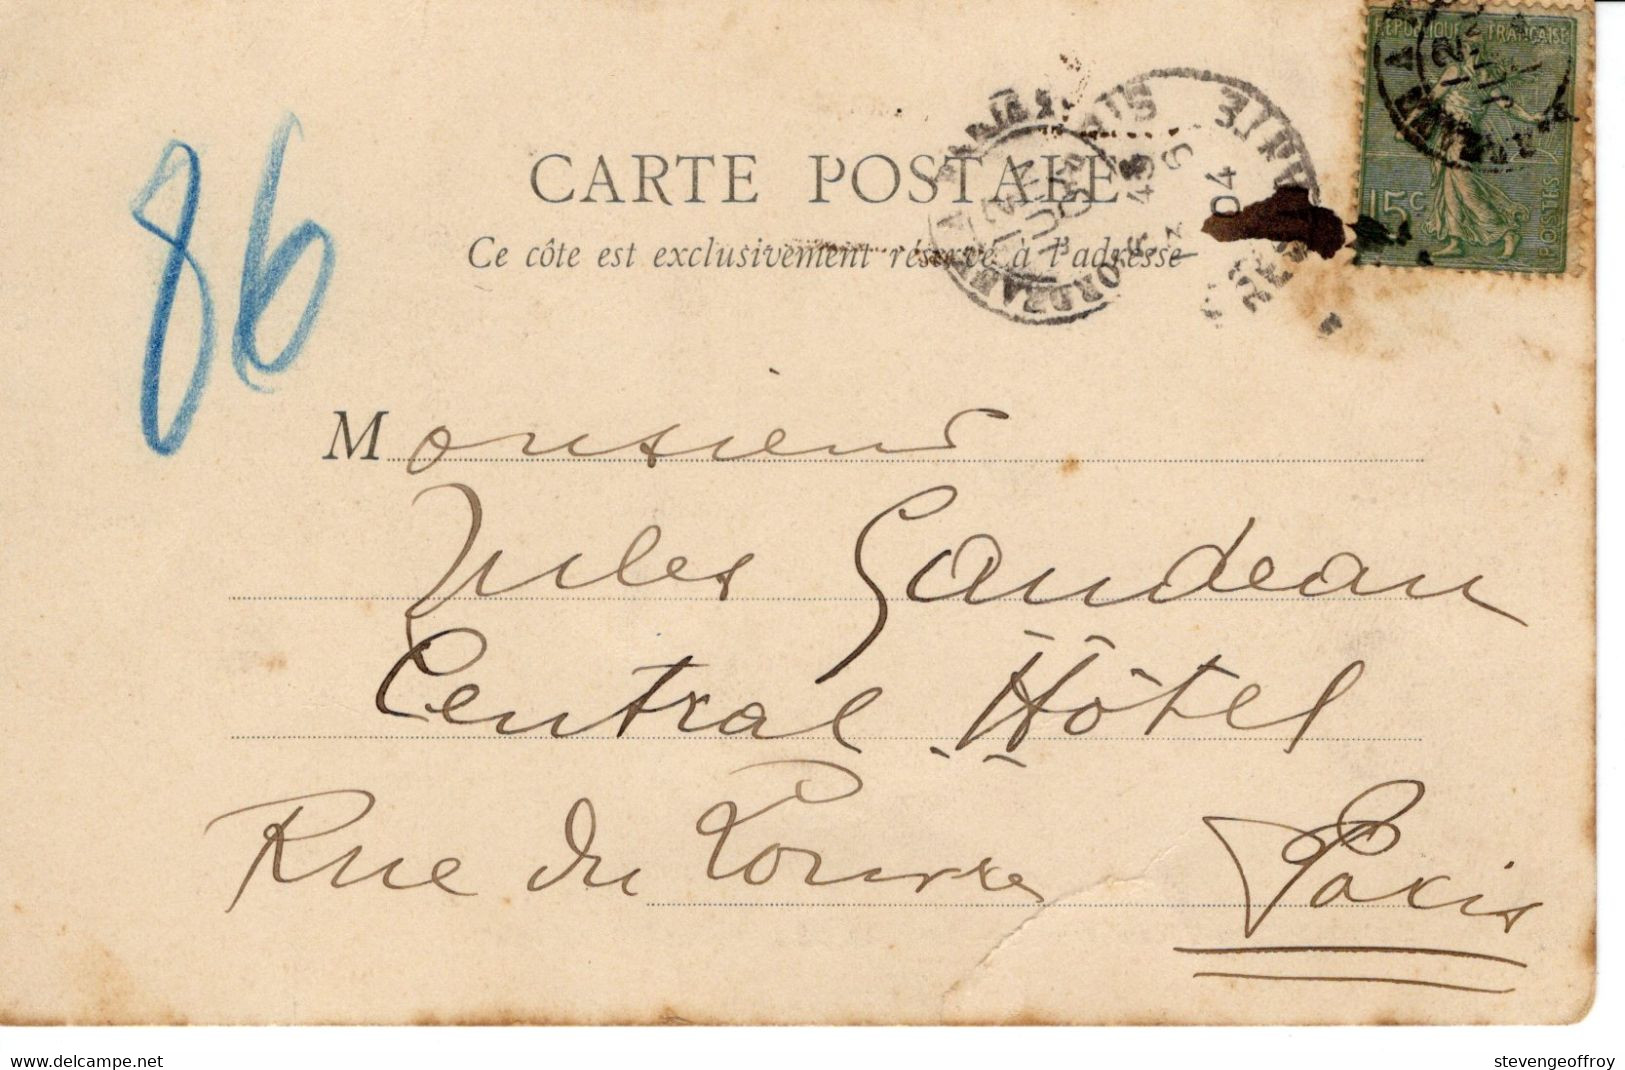 86
RÉPUBLIQUE FRANÇAISE
15c
POSTES
CARTE POSTALE
Ce côte est exclusivement réservé à l'adresse
PARIS
04
Monsieur
Jules Gaudeau
Central Hôtel
Rue du Louvre Paris
www.delcampe.net
stevengeoffroy